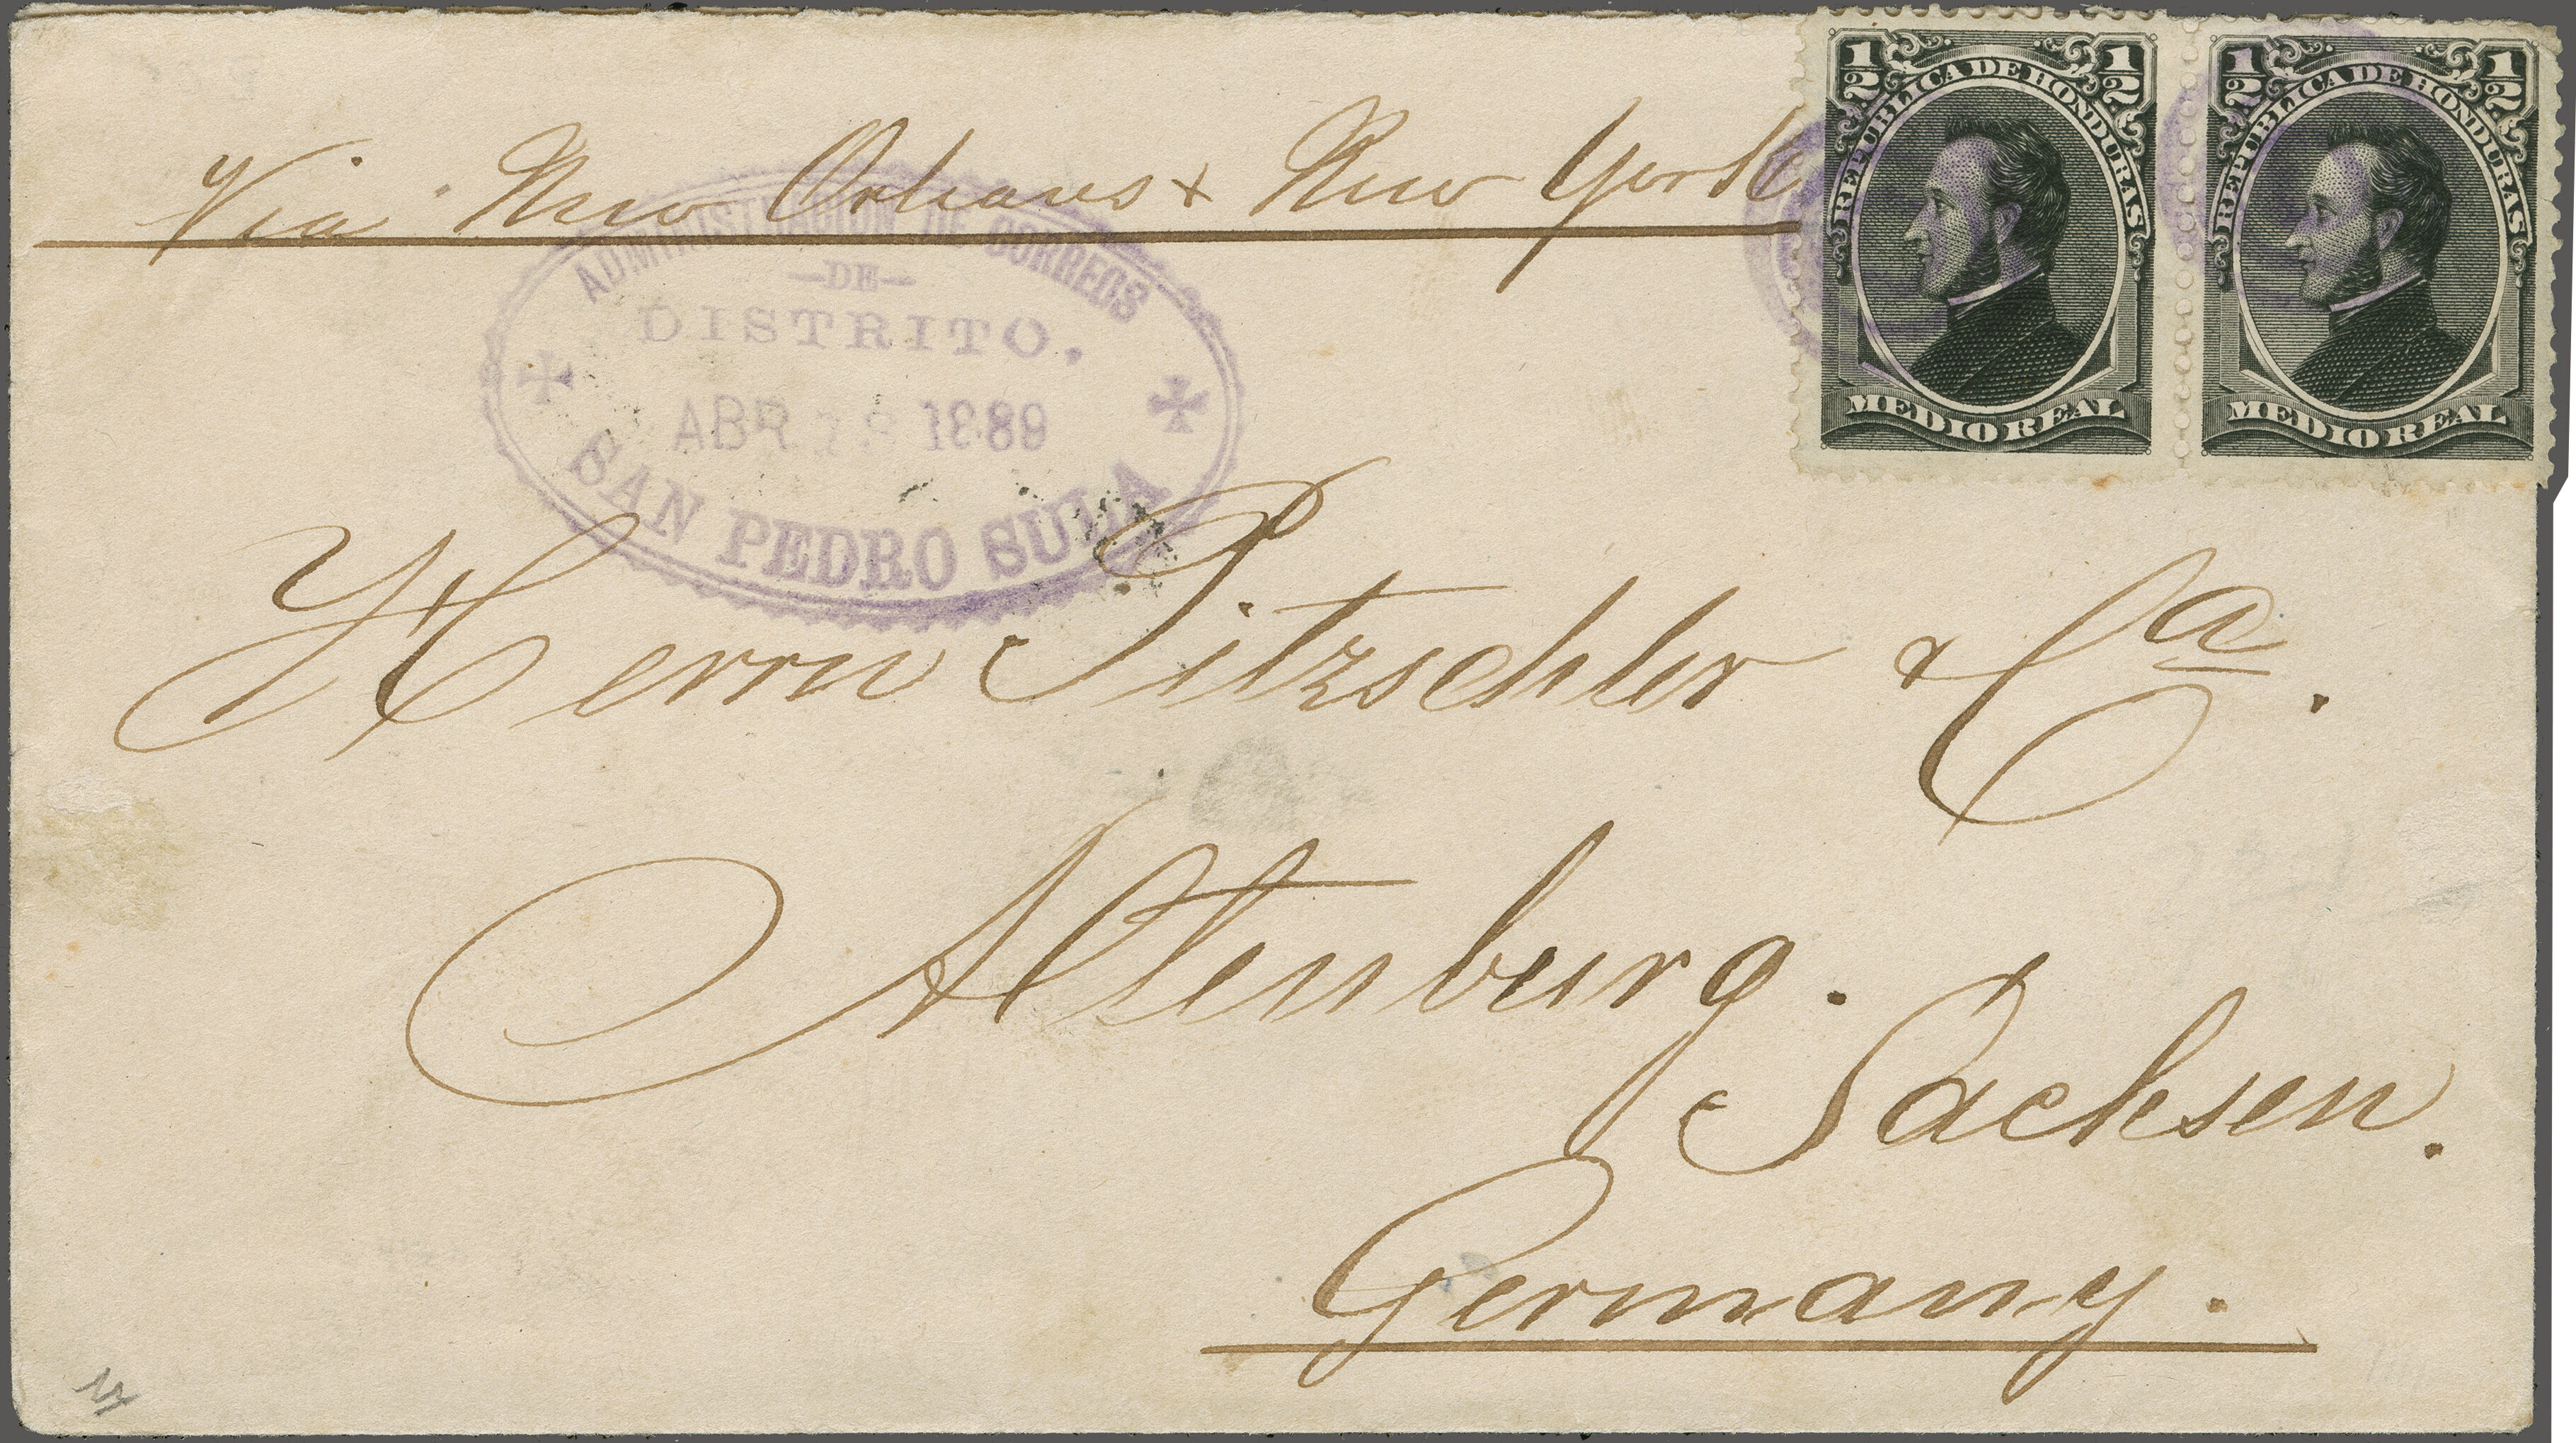 Via New Orleans & New York
1/2 1/2
REPUBLICA DE HONDURAS
MEDIO REAL
1/2 1/2
REPUBLICA DE HONDURAS
MEDIO REAL
ADMINISTRACION DE CORREOS
—DE—
DISTRITO.
ABR 1889
SAN PEDRO SULA
Herrn Pitzschler & Ca.
Altenburg.
Sachsen.
Germany.